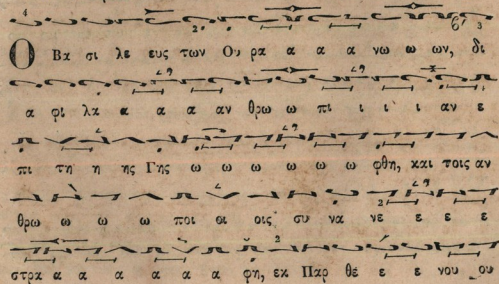 Ο Βα σι λε ευς των Ου ρα α α α νω ω ων, δι
α φι λα α α α αν θρω ω πι ι ι ι αν ε
πι τη η ης Γης ω ω ω ω ω ω φθη, και τοις αν
θρω ω ω ω ποι οι οις συ να νε ε ε ε
στρα α α α α α α φη, εκ Παρ θε ε ε νου ου